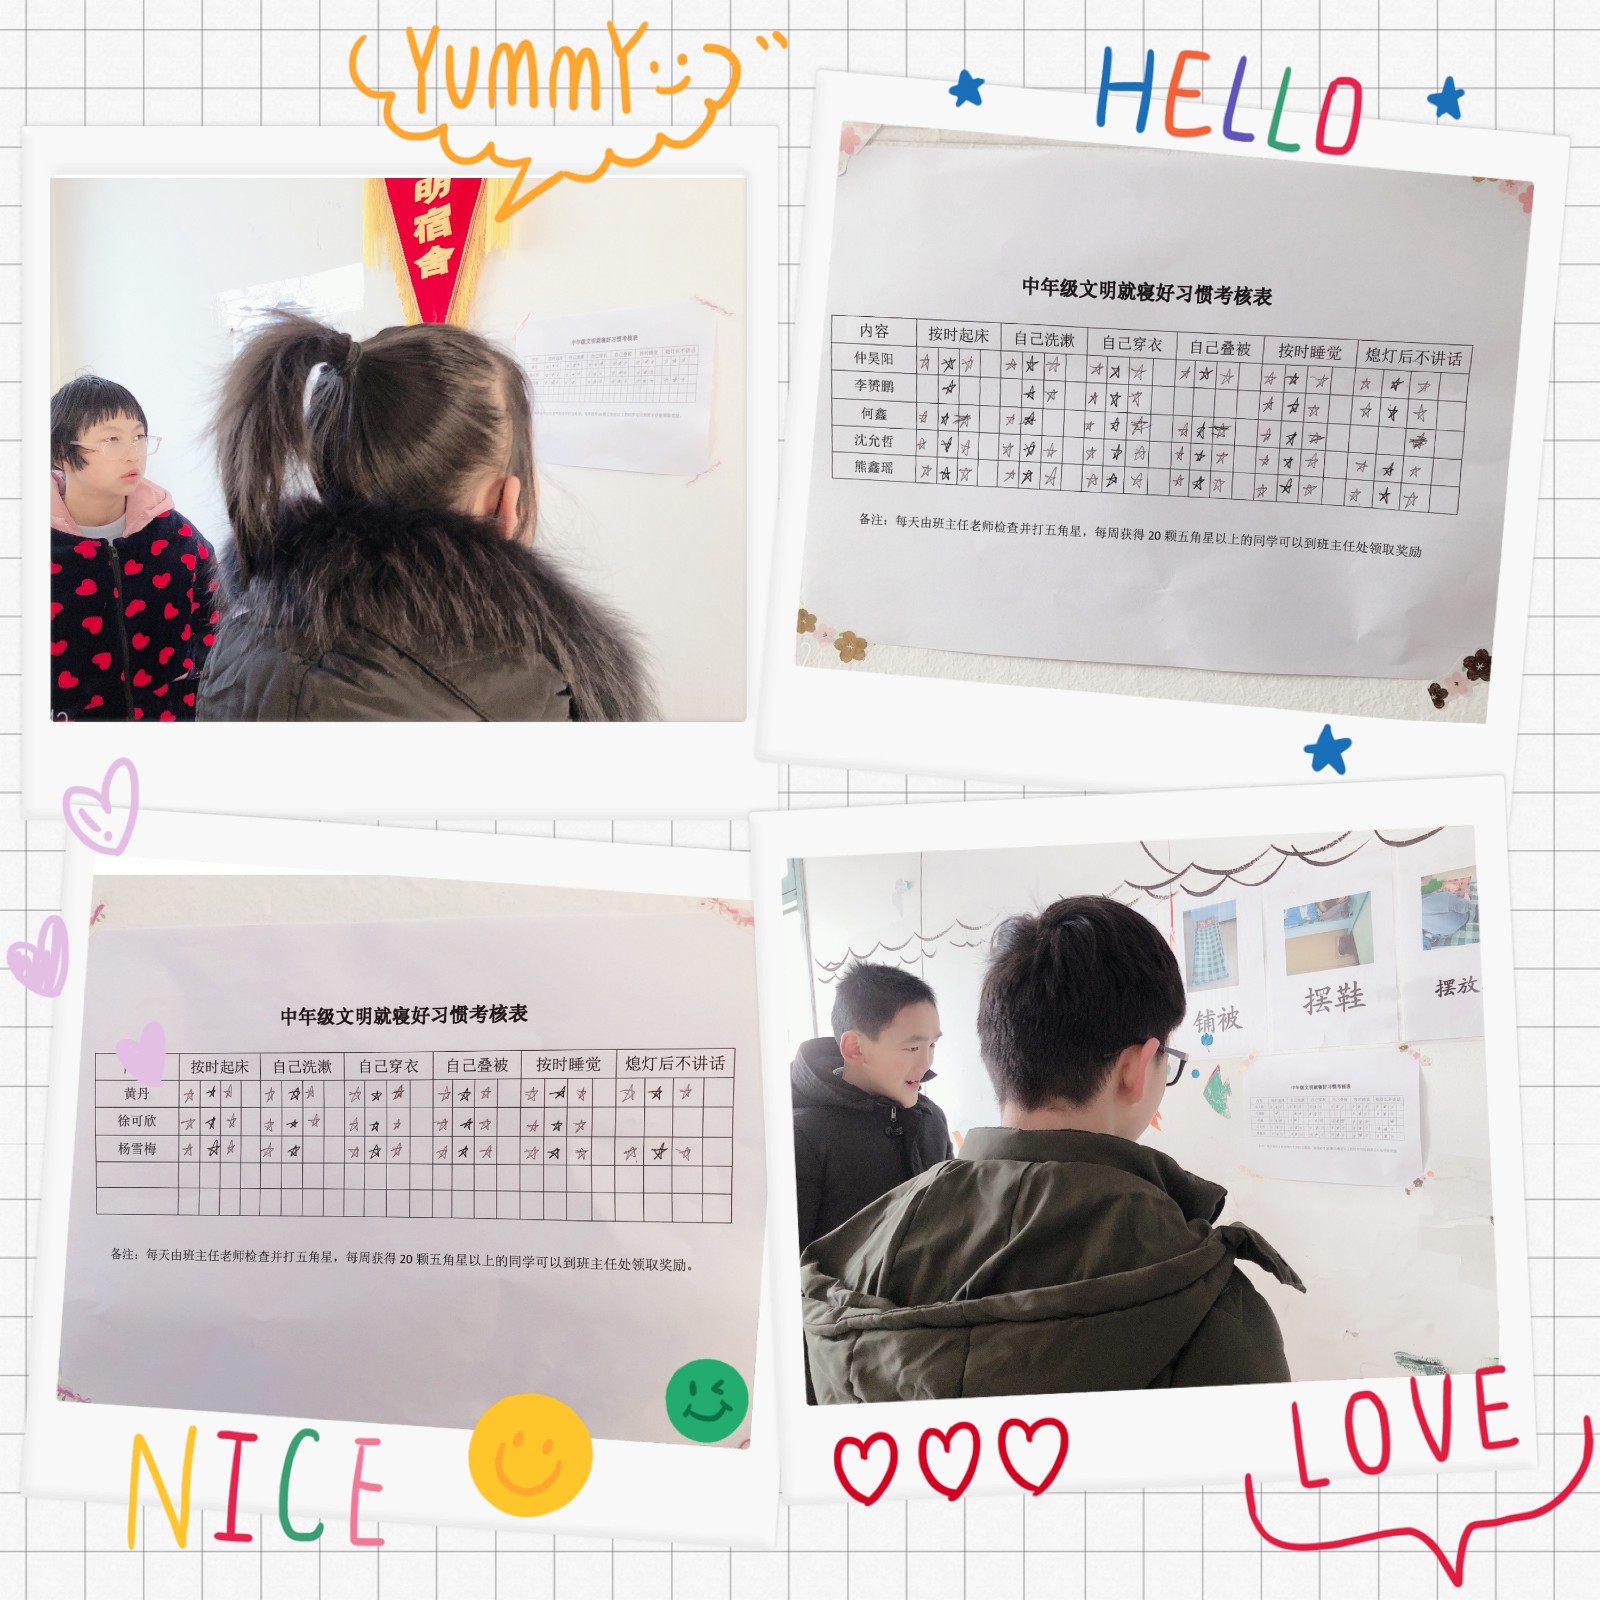 YUMMY
HELLO
明宿舍
中年级文明就寝好习惯考核表
内容 按时起床 自己洗漱 自己穿衣 自己叠被 按时睡觉 熄灯后不讲话
仲昊阳
李赟鹏
何鑫
沈允哲
熊鑫瑶
备注：每天由班主任老师检查并打五角星，每周获得 20 颗五角星以上的同学可以到班主任处领取奖励
中年级文明就寝好习惯考核表
按时起床 自己洗漱 自己穿衣 自己叠被 按时睡觉 熄灯后不讲话
黄丹
徐可欣
杨雪梅
备注：每天由班主任老师检查并打五角星，每周获得 20 颗五角星以上的同学可以到班主任处领取奖励。
铺被
摆鞋
摆放
NICE
LOVE